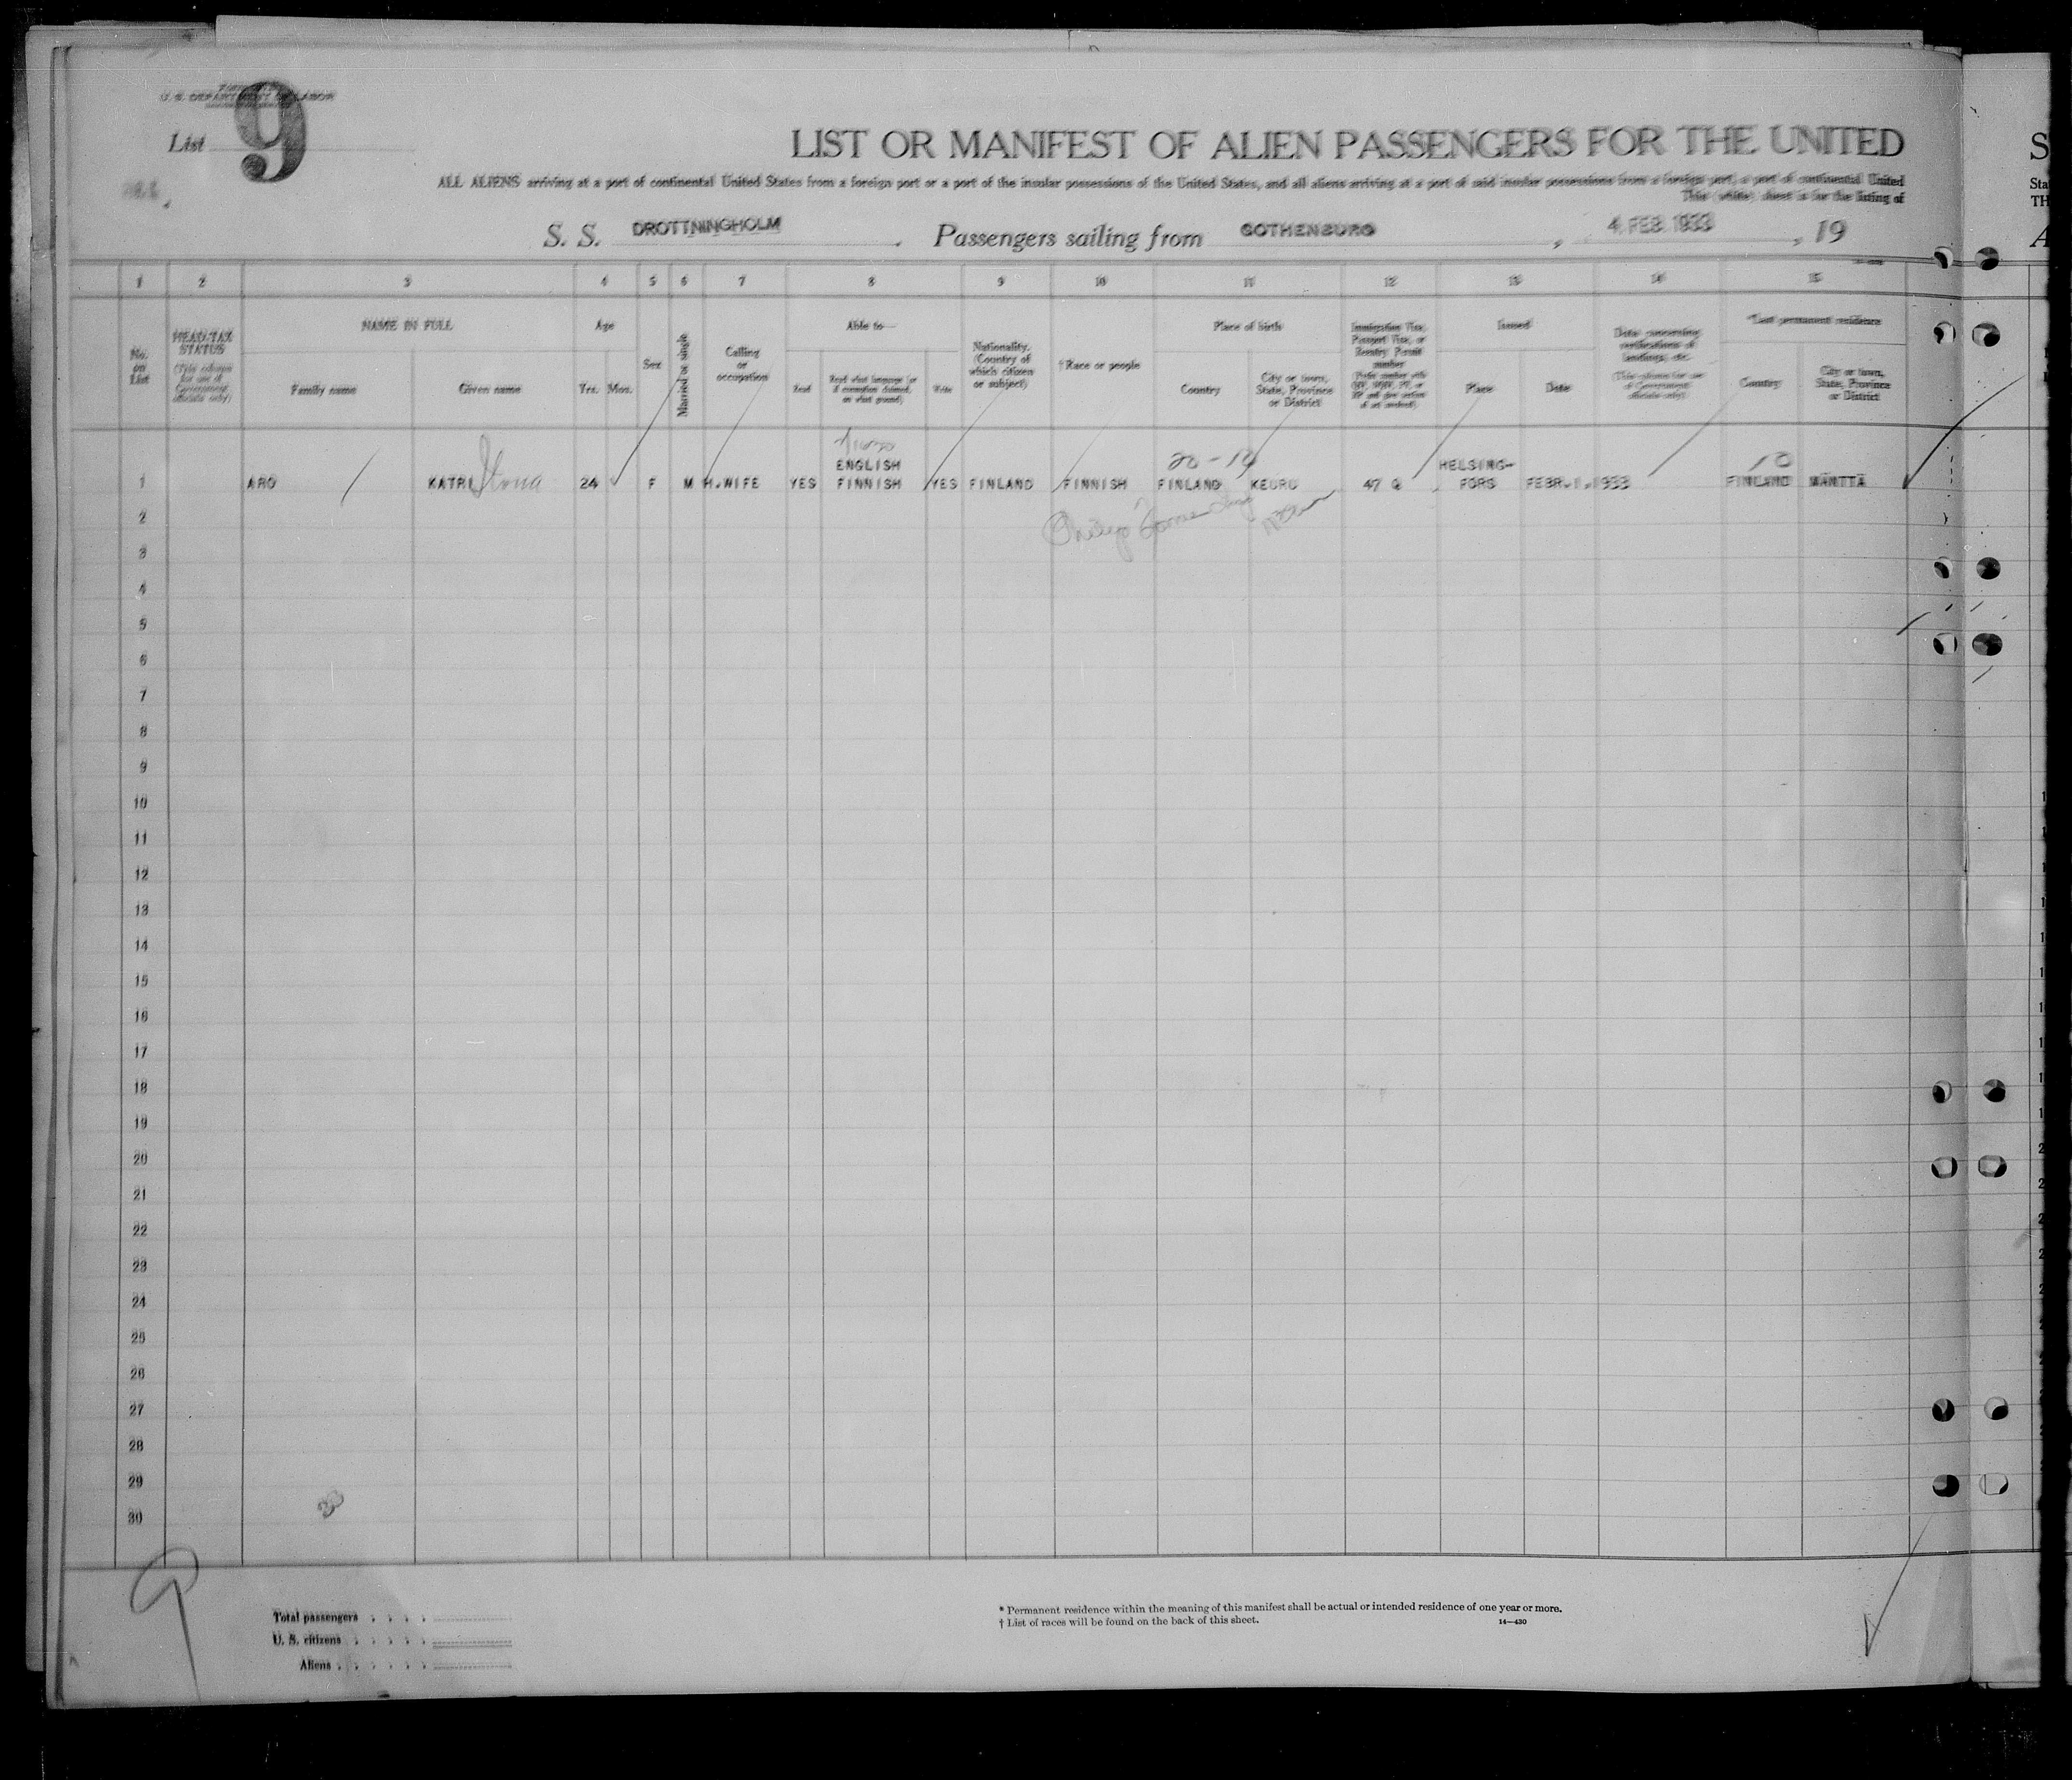 U. S. DEPARTMENT OF LABOR
List 9
LIST OR MANIFEST OF ALIEN PASSENGERS FOR THE UNITED
ALL ALIENS arriving at a port of continental United States from a foreign port or a port of the insular possessions of the United States, and all aliens arriving at a port of said insular possessions from a foreign port, a port of continental United
This (white) sheet is for the listing of
S. S. DROTTNINGHOLM . Passengers sailing from GOTHENBURG , 4. FEB. 1933 , 19
1 2 3 4 5 6 7 8 9 10 11 12 13 14 15
No. on List
HEAD-TAX STATUS (This column for use of Government officials only)
NAME IN FULL
Family name
Given name
Age
Yrs. Mos.
Sex
Married or single
Calling or occupation
Able to—
Read
Read what language [or if exemption claimed, on what ground]
Write
Nationality. (Country of which citizen or subject)
† Race or people
Place of birth
Country
City or town, State, Province or District
Immigration Visa, Passport Visa, or Reentry Permit number
Issued
Place
Date
Data concerning verifications of landings, etc.
(This column for use of Government officials only)
*Last permanent residence
Country
City or town, State, Province or District
20-10 10
ENGLISH HELSING-
1 ARO KATRI 24 F M H.WIFE YES FINNISH YES FINLAND FINNISH FINLAND KEURU 47 Q FORS FEBR.1.1933 FINLAND MÄNTTÄ
2
3
4
5
6
7
8
9
10
11
12
13
14
15
16
17
18
19
20
21
22
23
24
25
26
27
28
29
30
9
Total passengers
U. S. citizens
Aliens
* Permanent residence within the meaning of this manifest shall be actual or intended residence of one year or more.
† List of races will be found on the back of this sheet. 14—430